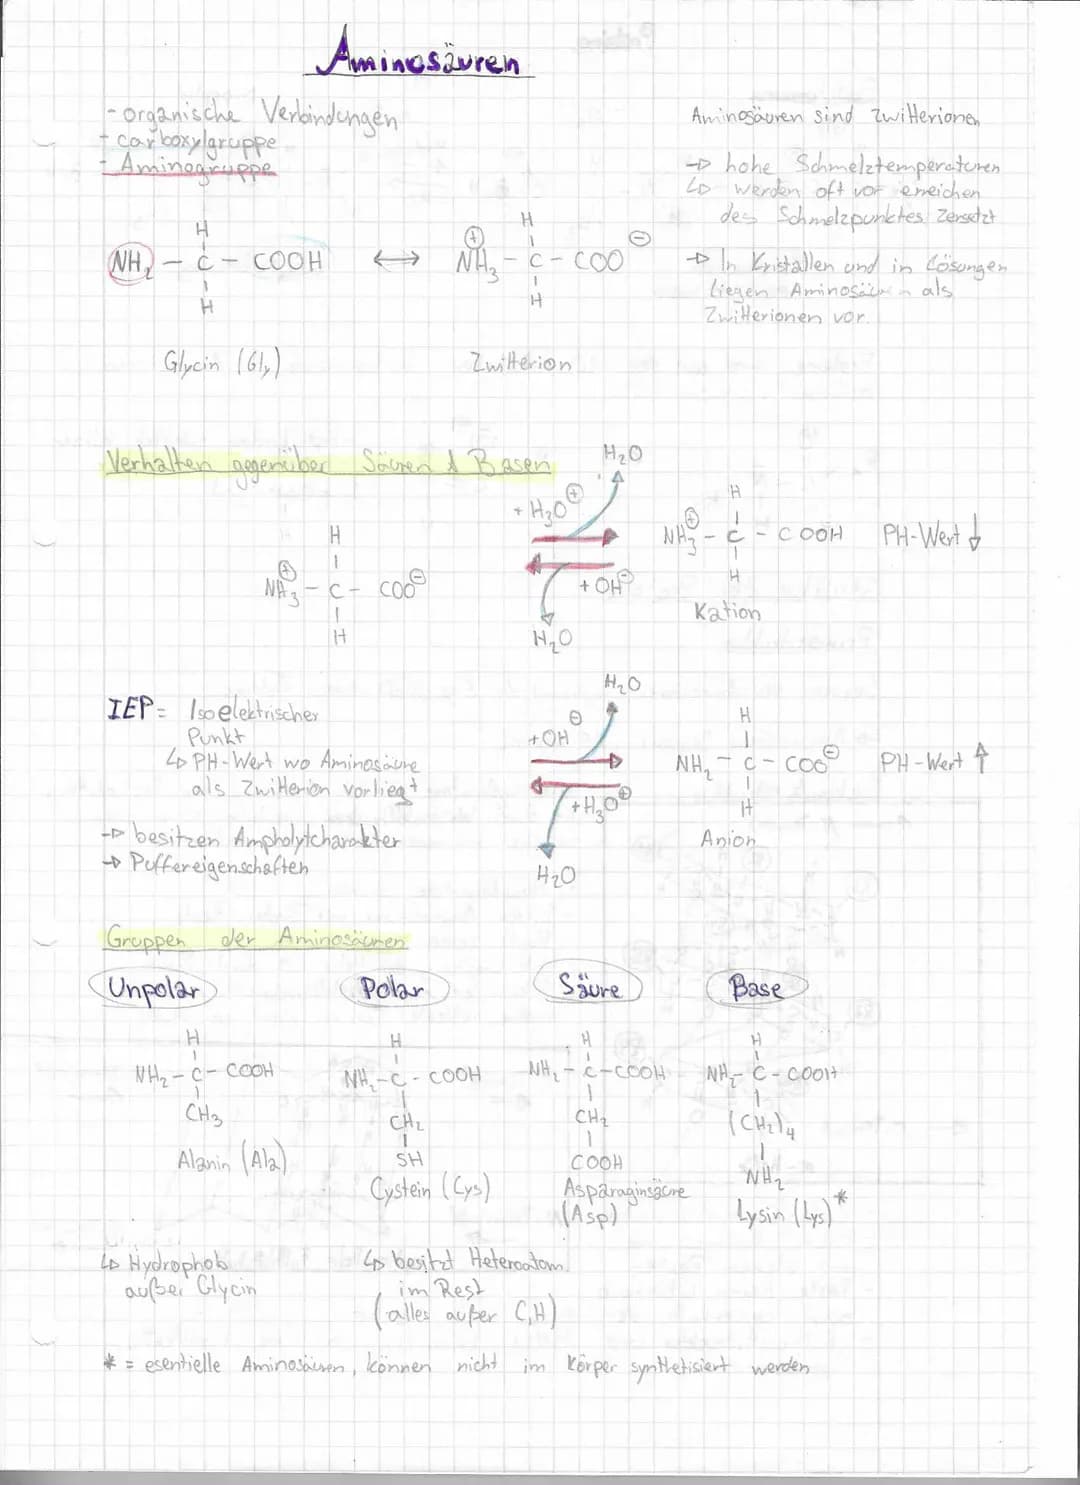 Aminosäuren
- organische Verbindungen
- carboxylgruppe
- Aminogruppe
H
NH2 - C - COOH
H
Glycin (Gly)
⟷
H
⊕ ⊖
NH3 - C - COO
H
Zwitterion
Aminosäuren sind Zwitterionen
→ hohe Schmelztemperaturen
↳ werden oft vor erreichen
des Schmelzpunktes zersetzt
→ In Kristallen und in Lösungen
liegen Aminosäuren als
Zwitterionen vor.
Verhalten gegenüber Säuren & Basen
H
⊕ ⊖
NH3 - C - COO
H
H2O
+ H3O⊕
+ OH⊖
H2O
H
⊕
NH3 - C - COOH PH-Wert ↓
H
Kation
IEP = Isoelektrischer
Punkt
↳ PH-Wert wo Aminosäure
als Zwitterion vorliegt
→ besitzen Ampholytcharakter
→ Puffereigenschaften
H2O
⊖
+OH
+H3O⊕
H2O
H
NH2 - C - COO⊖ PH-Wert ↑
H
Anion
Gruppen der Aminosäuren
Unpolar Polar Säure Base
H
NH2 - C - COOH
CH3
Alanin (Ala)
↳ Hydrophob
außer Glycin
H
NH2 - C - COOH
CH2
SH
Cystein (Cys)
↳ besitzt Heteroatom
im Rest
(alles außer C,H)
H
NH2 - C - COOH
CH2
COOH
Asparaginsäure
(Asp)
H
NH2 - C - COOH
(CH2)4
NH2
Lysin (Lys)*
* = esentielle Aminosäuren, können nicht im Körper synthetisiert werden